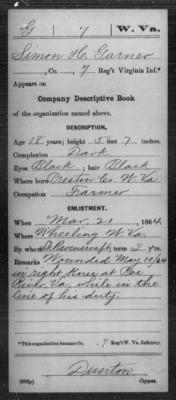 G 7 W. Va.
Simon H. Garner
, Co. , 7 Reg't Virginia Inf.*
Appears on
Company Descriptive Book
of the organization named above.
DESCRIPTION.
Age 18 years; height 5 feet 7 inches.
Complexion Dark
Eyes Black; hair Black
Where born Preston C. W. Va.
Occupation Farmer
ENLISTMENT.
When Mar. 21, 1864.
Where Wheeling W. Va.
By whom ; term 3 y'rs.
Remarks Wounded May 10/64
in right knee at Poe
River, Va, while in the
line of his duty.
*This organization became Co. , 7 Reg't W. Va. Infantry.
Dunton
Copyist.